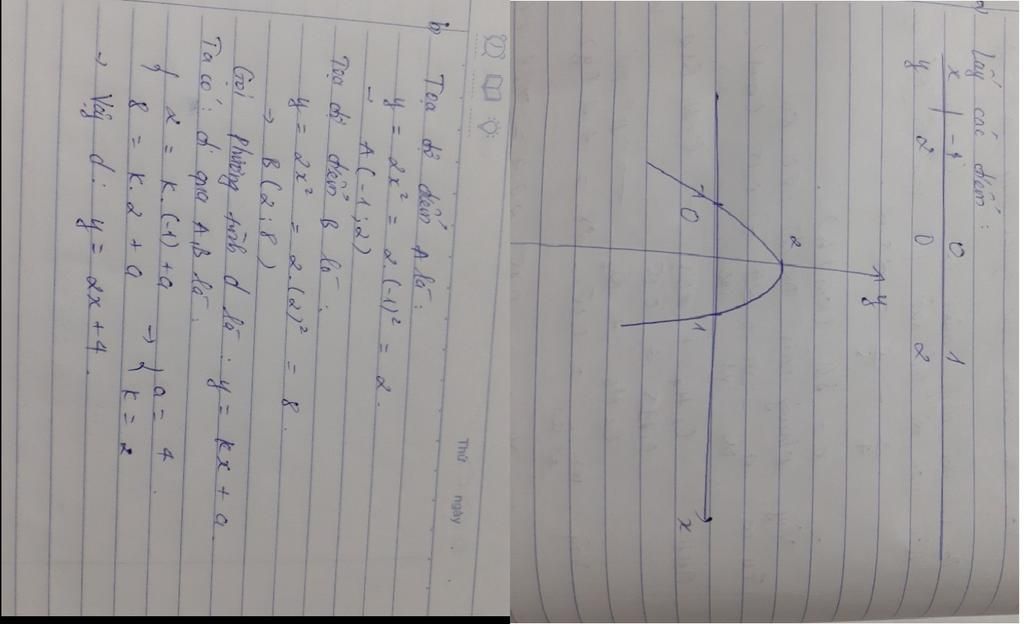 a)
Lấy các điểm:
x | -1 0 1
y 2 0 2
y
2
-1
0
1
x
Thứ ngày
b) Tọa độ điểm A là:
y = 2x² = 2.(-1)² = 2.
→ A(-1;2)
Tọa độ điểm B là:
y = 2x² = 2.(2)² = 8.
→ B(2;8)
Gọi phương trình d là: y = kx + a.
Ta có: d qua A,B là:
{ 2 = k.(-1) + a → { a = 4.
8 = k.2 + a k = 2
→ Vậy d: y = 2x + 4.